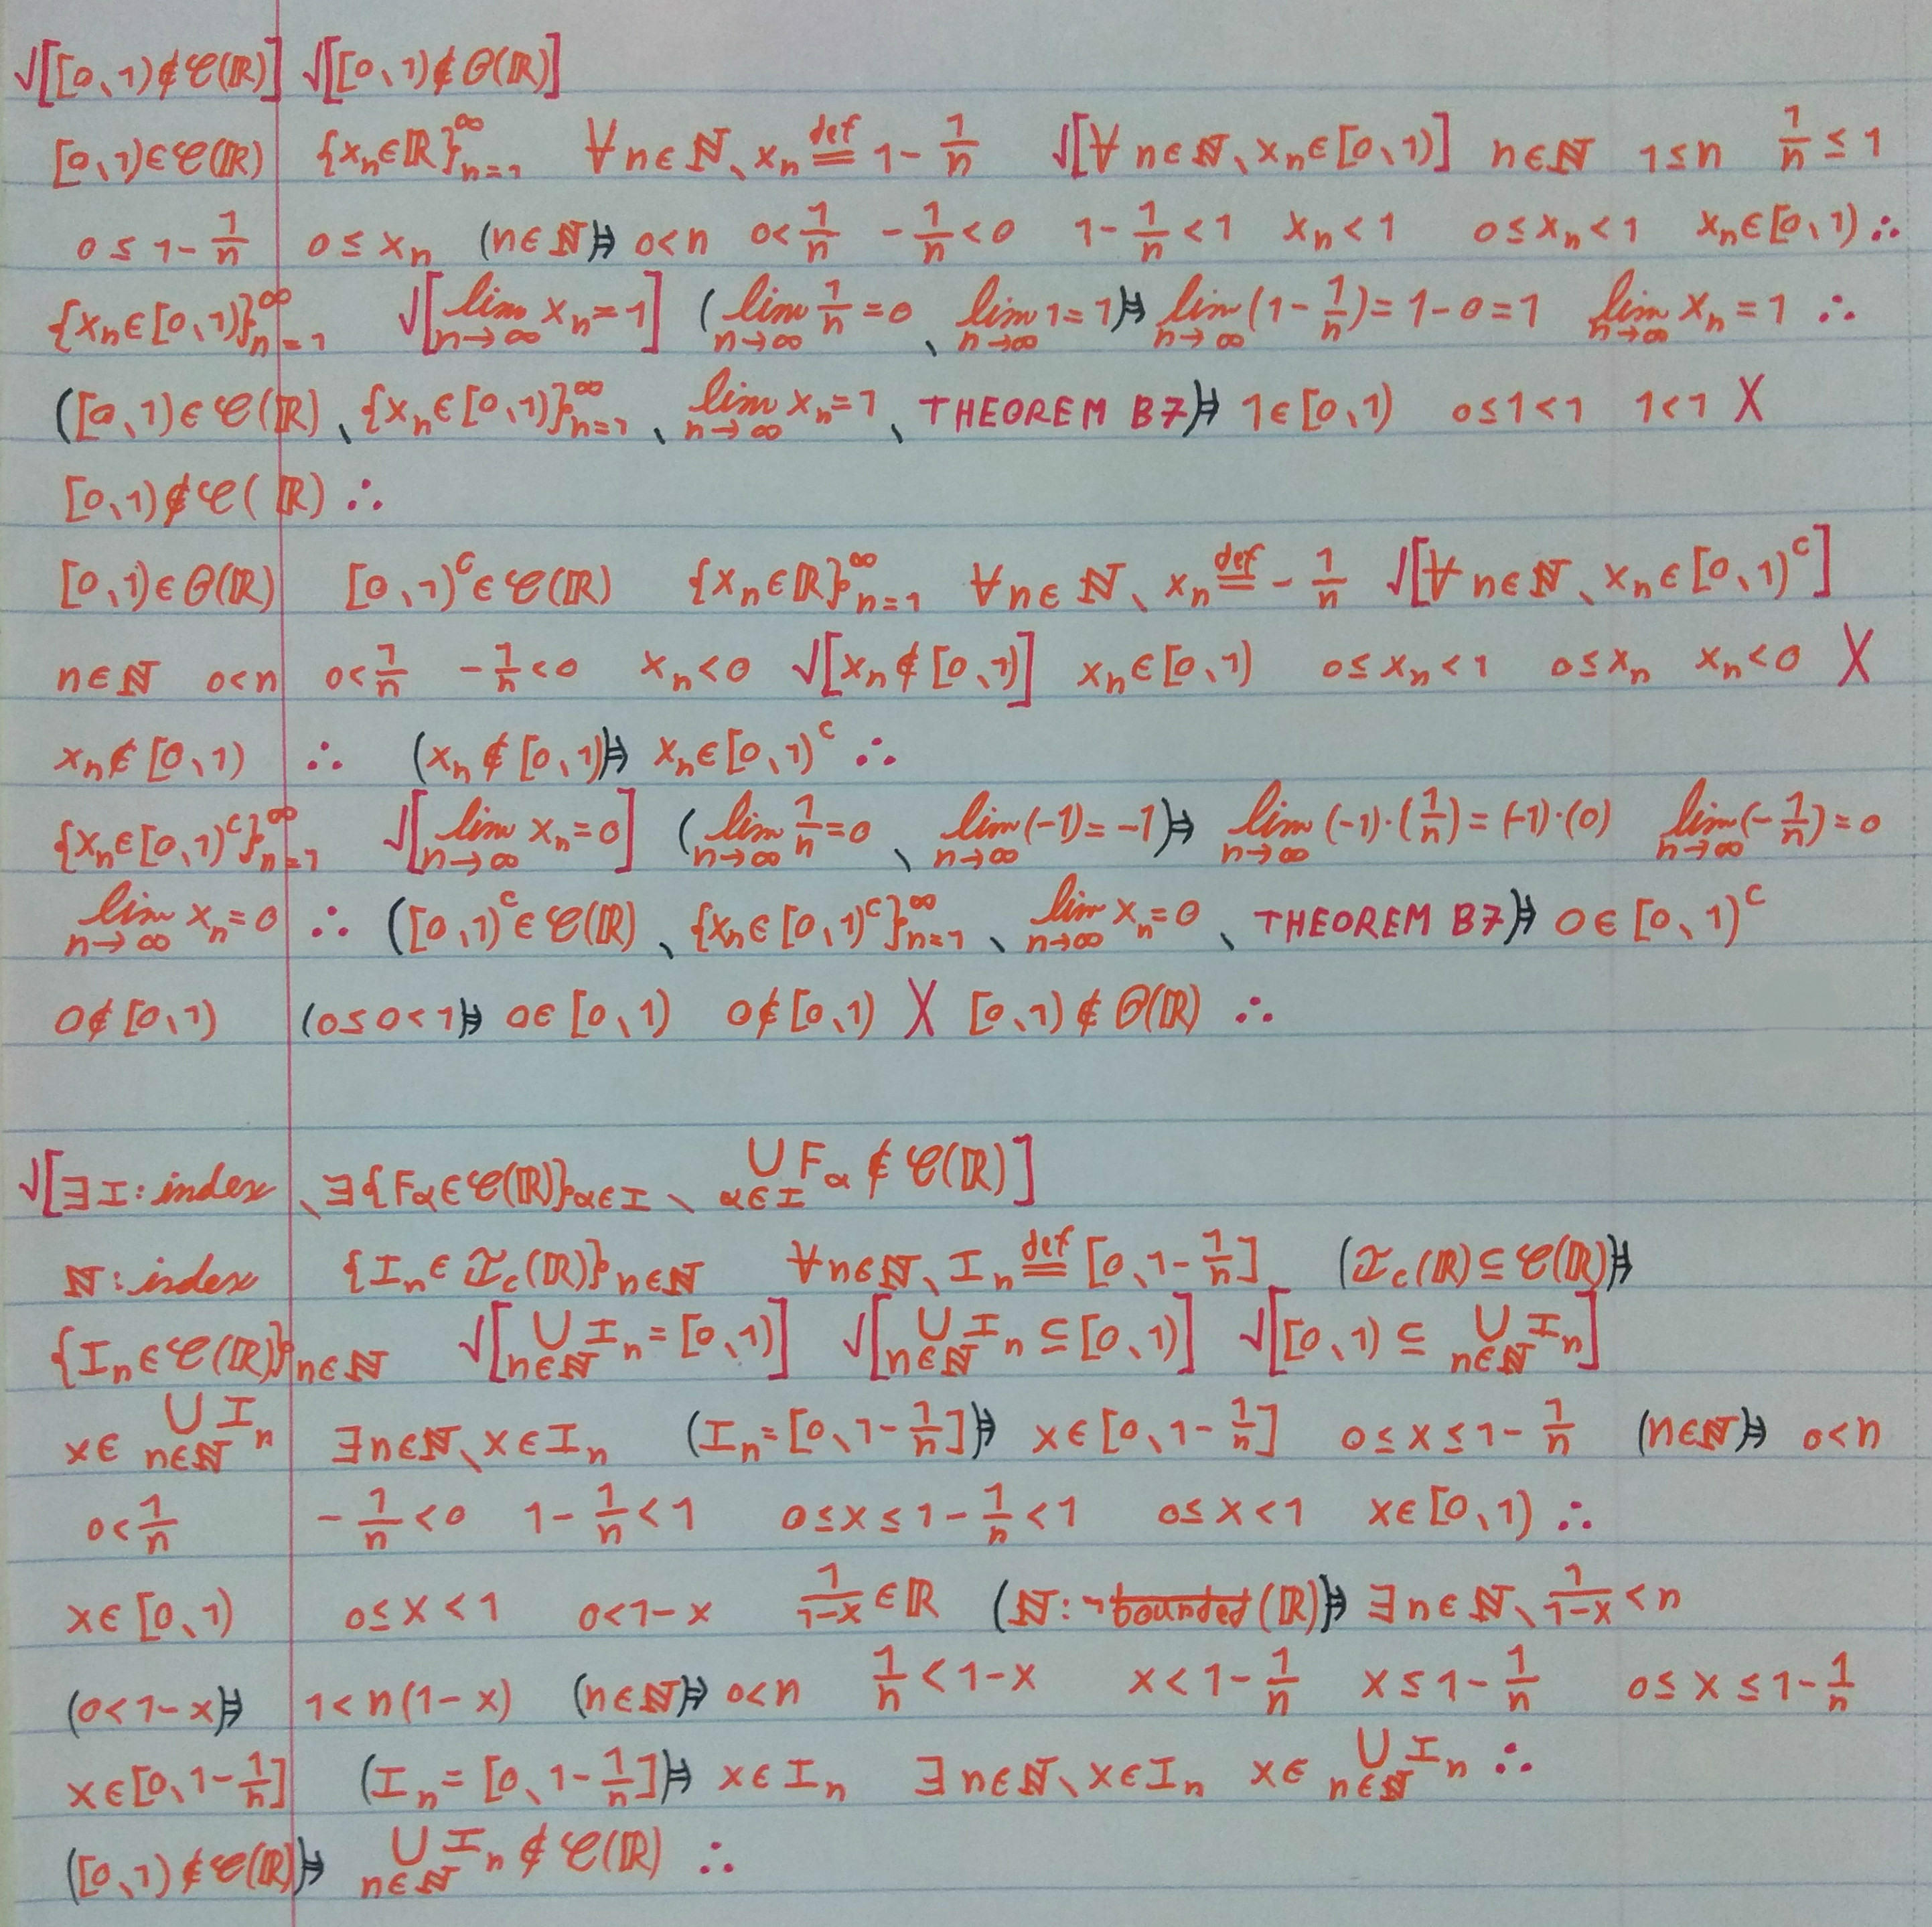 √[[0、1)∉𝒞(ℝ)] √[[0、1)∉𝒪(ℝ)]
[0、1)∈𝒞(ℝ) {xₙ∈ℝ}ₙ₌₁^∞ ∀n∈ℕ、xₙ ≝ 1-1/n √[∀n∈ℕ、xₙ∈[0、1)] n∈ℕ 1≤n 1/n≤1
0≤1-1/n 0≤xₙ (n∈ℕ)⇒ 0<n 0<1/n -1/n<0 1-1/n<1 xₙ<1 0≤xₙ<1 xₙ∈[0、1) ∴
{xₙ∈[0、1)}ₙ₌₁^∞ √[lim_{n→∞} xₙ=1] (lim_{n→∞} 1/n=0、lim_{n→∞} 1=1)⇒ lim_{n→∞} (1-1/n)=1-0=1 lim_{n→∞} xₙ=1 ∴
([0、1)∈𝒞(ℝ)、{xₙ∈[0、1)}ₙ₌₁^∞、lim_{n→∞} xₙ=1、THEOREM B7)⇒ 1∈[0、1) 0≤1<1 1<1 X
[0、1)∉𝒞(ℝ) ∴
[0、1)∈𝒪(ℝ) [0、1)^c∈𝒞(ℝ) {xₙ∈ℝ}ₙ₌₁^∞ ∀n∈ℕ、xₙ ≝ -1/n √[∀n∈ℕ、xₙ∈[0、1)^c]
n∈ℕ 0<n 0<1/n -1/n<0 xₙ<0 √[xₙ∉[0、1)] xₙ∈[0、1) 0≤xₙ<1 0≤xₙ xₙ<0 X
xₙ∉[0、1) ∴ (xₙ∉[0、1))⇒ xₙ∈[0、1)^c ∴
{xₙ∈[0、1)^c}ₙ₌₁^∞ √[lim_{n→∞} xₙ=0] (lim_{n→∞} 1/n=0、lim_{n→∞} (-1)=-1)⇒ lim_{n→∞} (-1)·(1/n)=(-1)·(0) lim_{n→∞} (-1/n)=0
lim_{n→∞} xₙ=0 ∴ ([0、1)^c∈𝒞(ℝ)、{xₙ∈[0、1)^c}ₙ₌₁^∞、lim_{n→∞} xₙ=0、THEOREM B7)⇒ 0∈[0、1)^c
0∉[0、1) (0≤0<1)⇒ 0∈[0、1) 0∉[0、1) X [0、1)∉𝒪(ℝ) ∴
√[∃I:index、∃{F_α∈𝒞(ℝ)}_{α∈I}、∪_{α∈I} F_α∉𝒞(ℝ)]
ℕ:index {Iₙ∈ℐ_c(ℝ)}_{n∈ℕ} ∀n∈ℕ、Iₙ ≝ [0、1-1/n] (ℐ_c(ℝ)⊆𝒞(ℝ))⇒
{Iₙ∈𝒞(ℝ)}_{n∈ℕ} √[∪_{n∈ℕ} Iₙ=[0、1)] √[∪_{n∈ℕ} Iₙ⊆[0、1)] √[[0、1)⊆∪_{n∈ℕ} Iₙ]
x∈∪_{n∈ℕ} Iₙ ∃n∈ℕ、x∈Iₙ (Iₙ=[0、1-1/n])⇒ x∈[0、1-1/n] 0≤x≤1-1/n (n∈ℕ)⇒ 0<n
0<1/n -1/n<0 1-1/n<1 0≤x≤1-1/n<1 0≤x<1 x∈[0、1) ∴
x∈[0、1) 0≤x<1 0<1-x 1/(1-x)∈ℝ (ℕ:¬bounded(ℝ))⇒ ∃n∈ℕ、1/(1-x)<n
(0<1-x)⇒ 1<n(1-x) (n∈ℕ)⇒ 0<n 1/n<1-x x<1-1/n x≤1-1/n 0≤x≤1-1/n
x∈[0、1-1/n] (Iₙ=[0、1-1/n])⇒ x∈Iₙ ∃n∈ℕ、x∈Iₙ x∈∪_{n∈ℕ} Iₙ ∴
([0、1)∉𝒞(ℝ))⇒ ∪_{n∈ℕ} Iₙ∉𝒞(ℝ) ∴